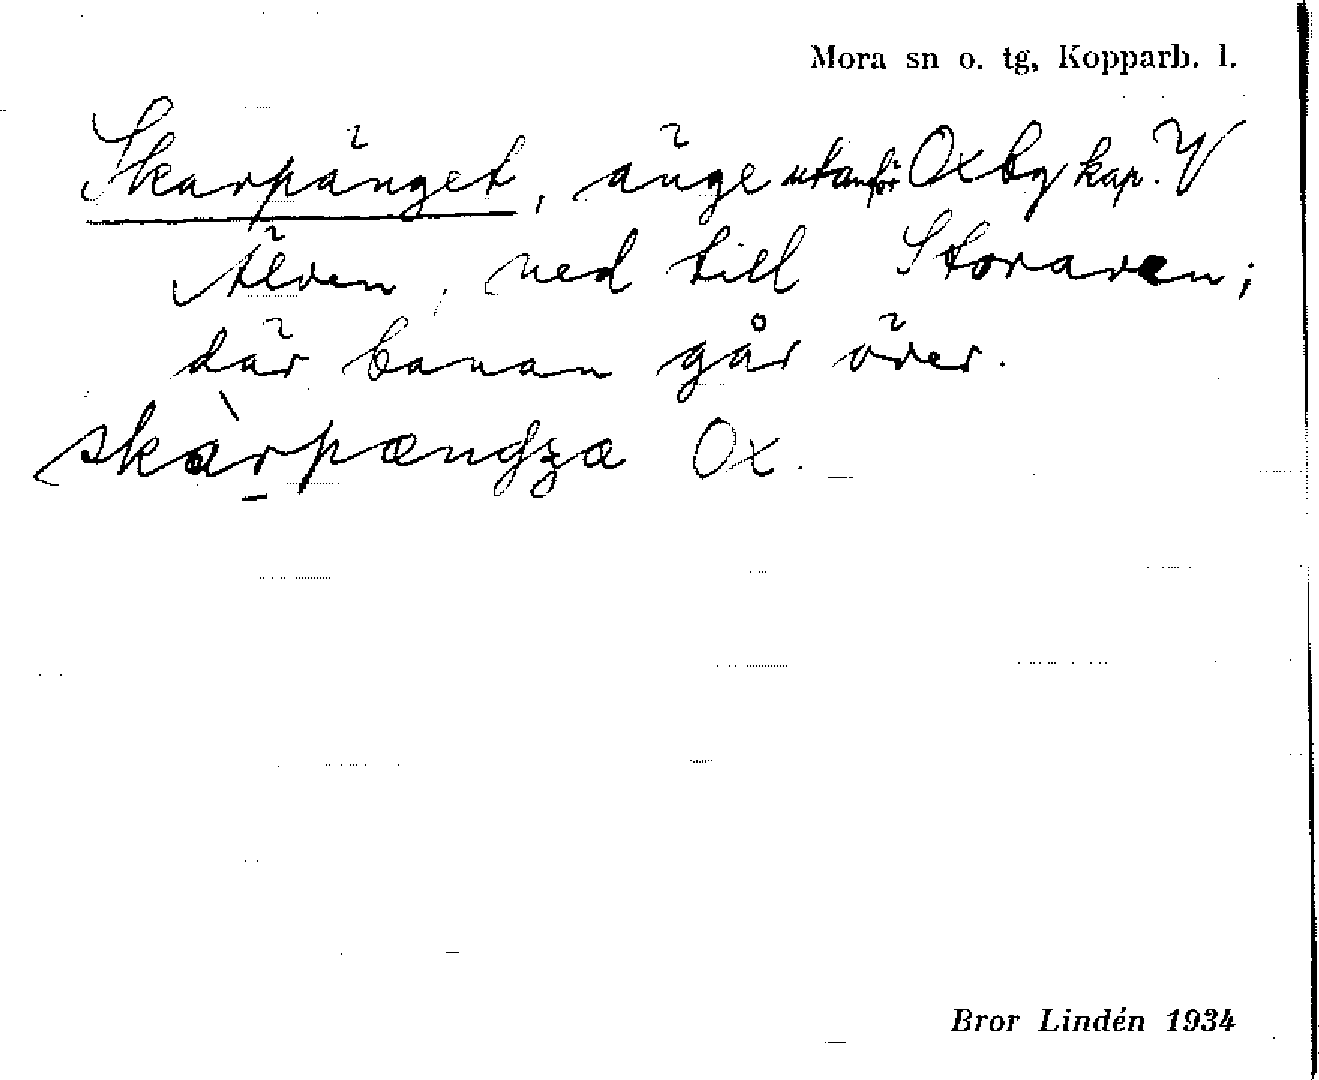 Mora sn o. tg, Kopparb. l.
Skarpänget, änge utanför Oxby kap. V
Älven, ned till Storaren;
där banan går över.
skàrpængʒa Ox.
Bror Lindén 1934